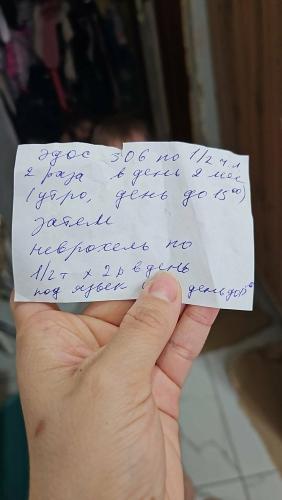 Эдос 306 по 1/2 ч л
2 раза в день 2 мес
(утро, день до 15⁰⁰)
затем
неврохель по
1/2 т х 2 р в день
под язык день до